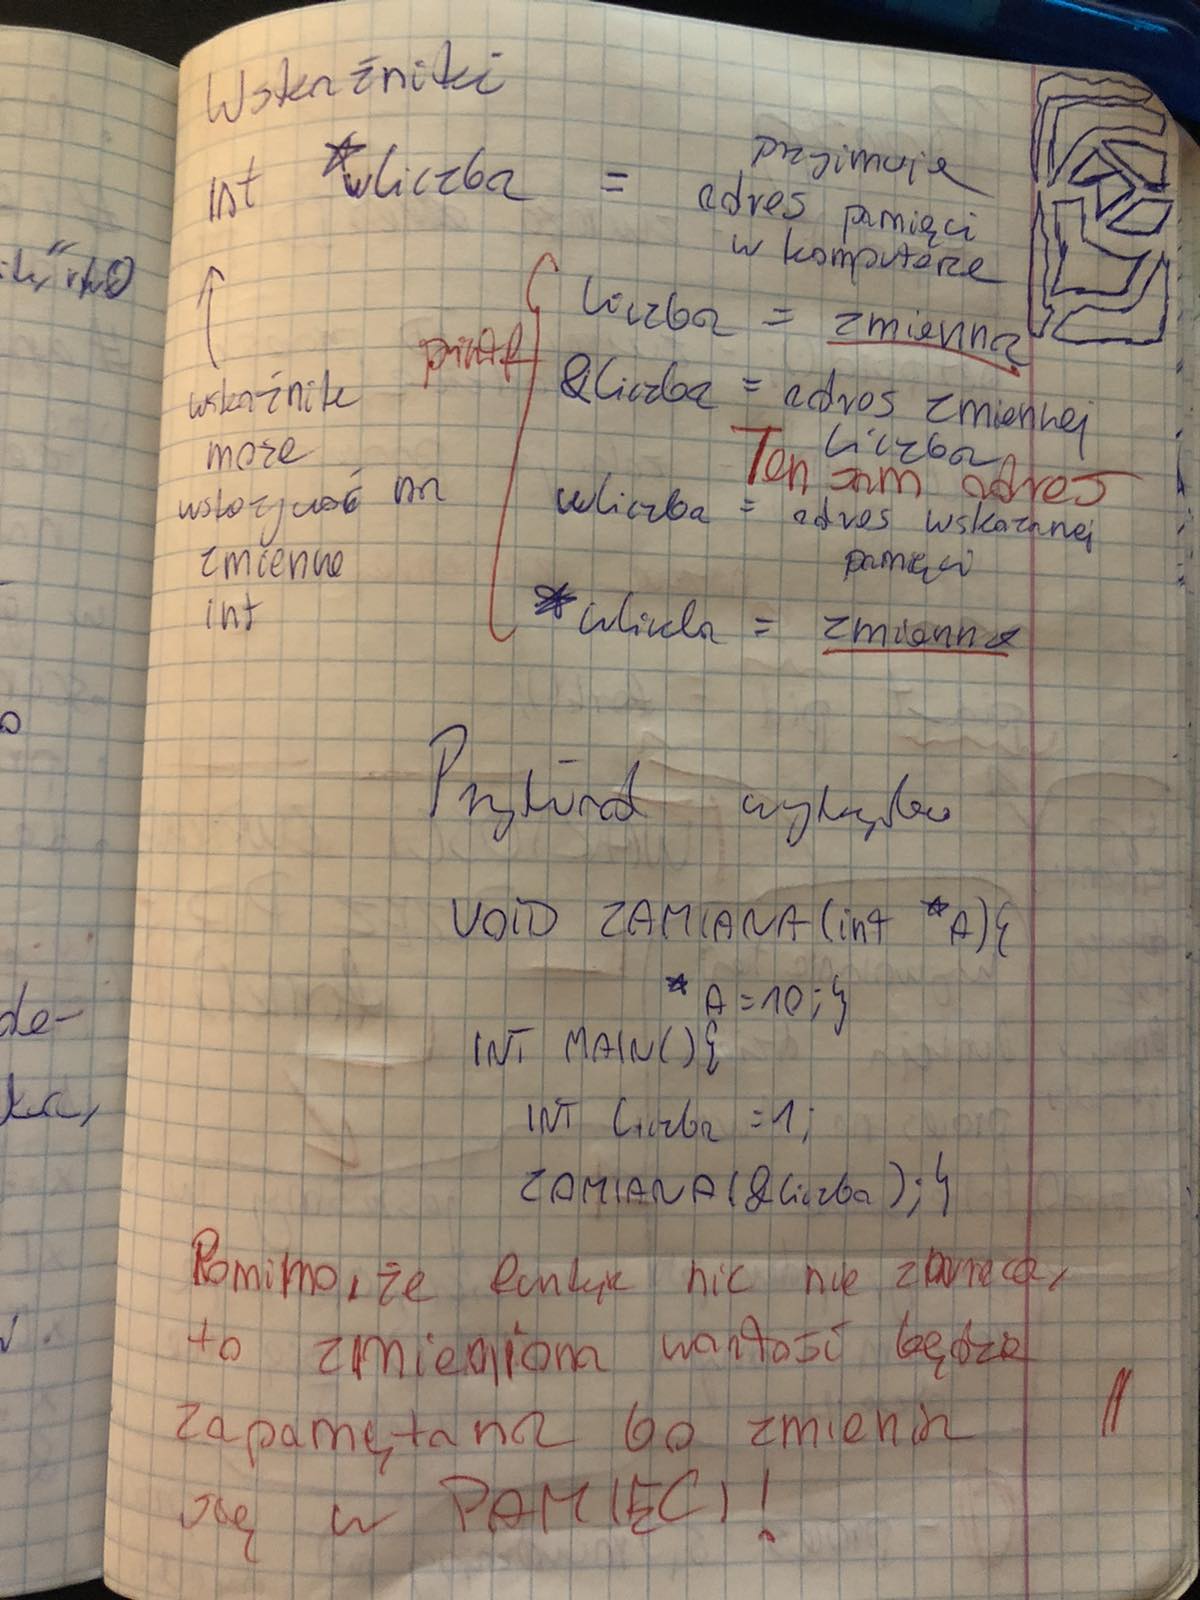 Wskaźniki
int *wliczba = przyjmuje
adres pamięci
w komputerze
wskaźnik
może
wskazywać na
zmienne
int
printf
liczba = zmienna
&liczba = adres zmiennej
liczba
Ten sam adres
wliczba = adres wskazanej
pamięci
*wliczba = zmienna
Przykład
VOID ZAMIANA(int *A){
*A=10;}
INT MAIN(){
INT liczba =1;
ZAMIANA(&liczba);}
Pomimo, że funkcja nic nie zwraca,
to zmieniona wartość będzie
zapamętana bo zmienia
się w PAMIĘCI!